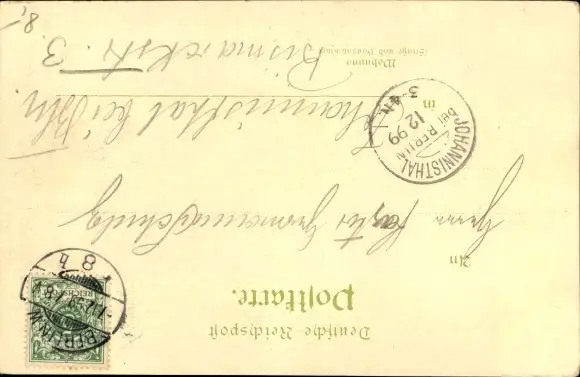 Deutsche Reichspost
Postkarte.
An
Herrn Pastor
in Johannisthal bei Bln.
Wohnung
(Straße und Hausnummer)
Bismarckstr. 3.
JOHANNISTHAL
bei BERLIN
12 99
3-4N.
BERLIN.W.
REICHSPOST
8.